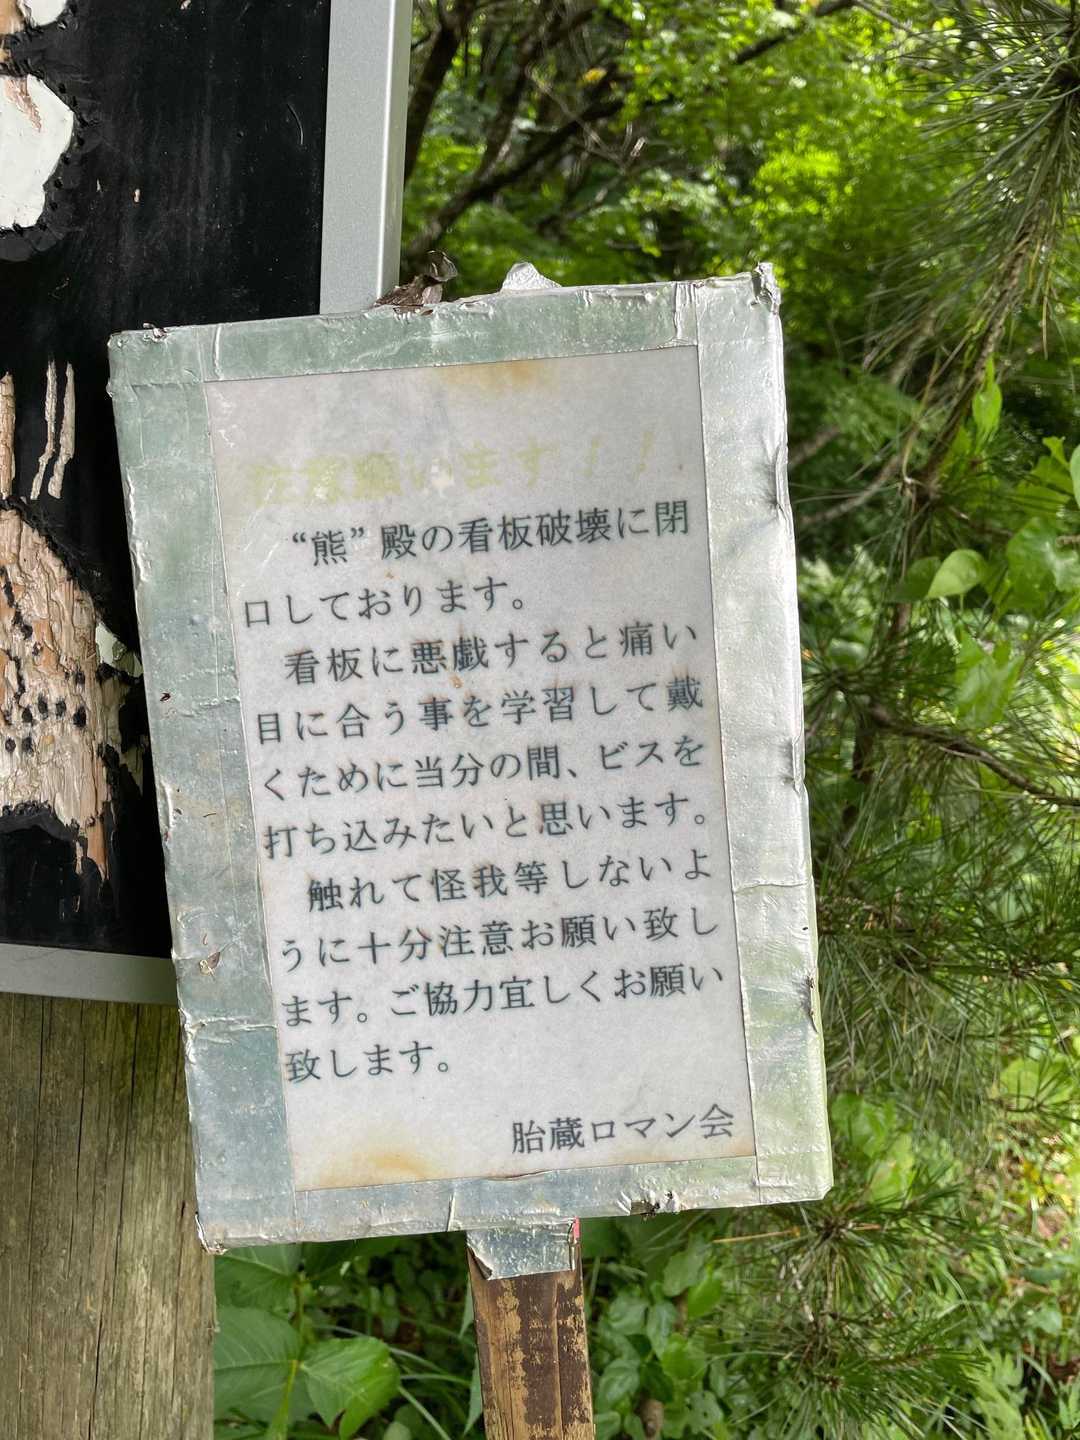 注意願います！！
“熊”殿の看板破壊に閉
口しております。
看板に悪戯すると痛い
目に合う事を学習して戴
くために当分の間、ビスを
打ち込みたいと思います。
触れて怪我等しないよ
うに十分注意お願い致し
ます。ご協力宜しくお願い
致します。
胎蔵ロマン会